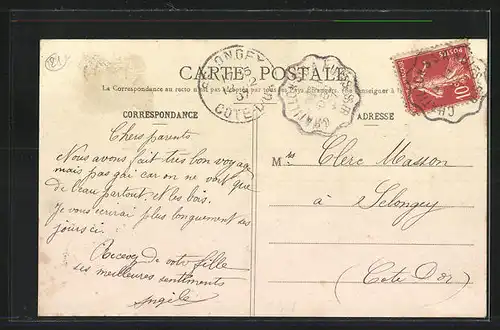 CARTE POSTALE
La Correspondance au recto n'est pas acceptée par tous les Pays étrangers. (Se renseigner à la
CORRESPONDANCE
ADRESSE
SELONGEY
CÔTE-D'OR
POSTES
10
Chers parents
Nous avons fait très bon voyage
mais pas gai car on ne voit que
de l'eau partout, et les bois.
Je vous écrirai plus longuement ces
jours ci.
Recevez de votre fille
ses meilleures sentiments
Angèle
M rs Clerc Masson
à Selongey
(Cote D'or)